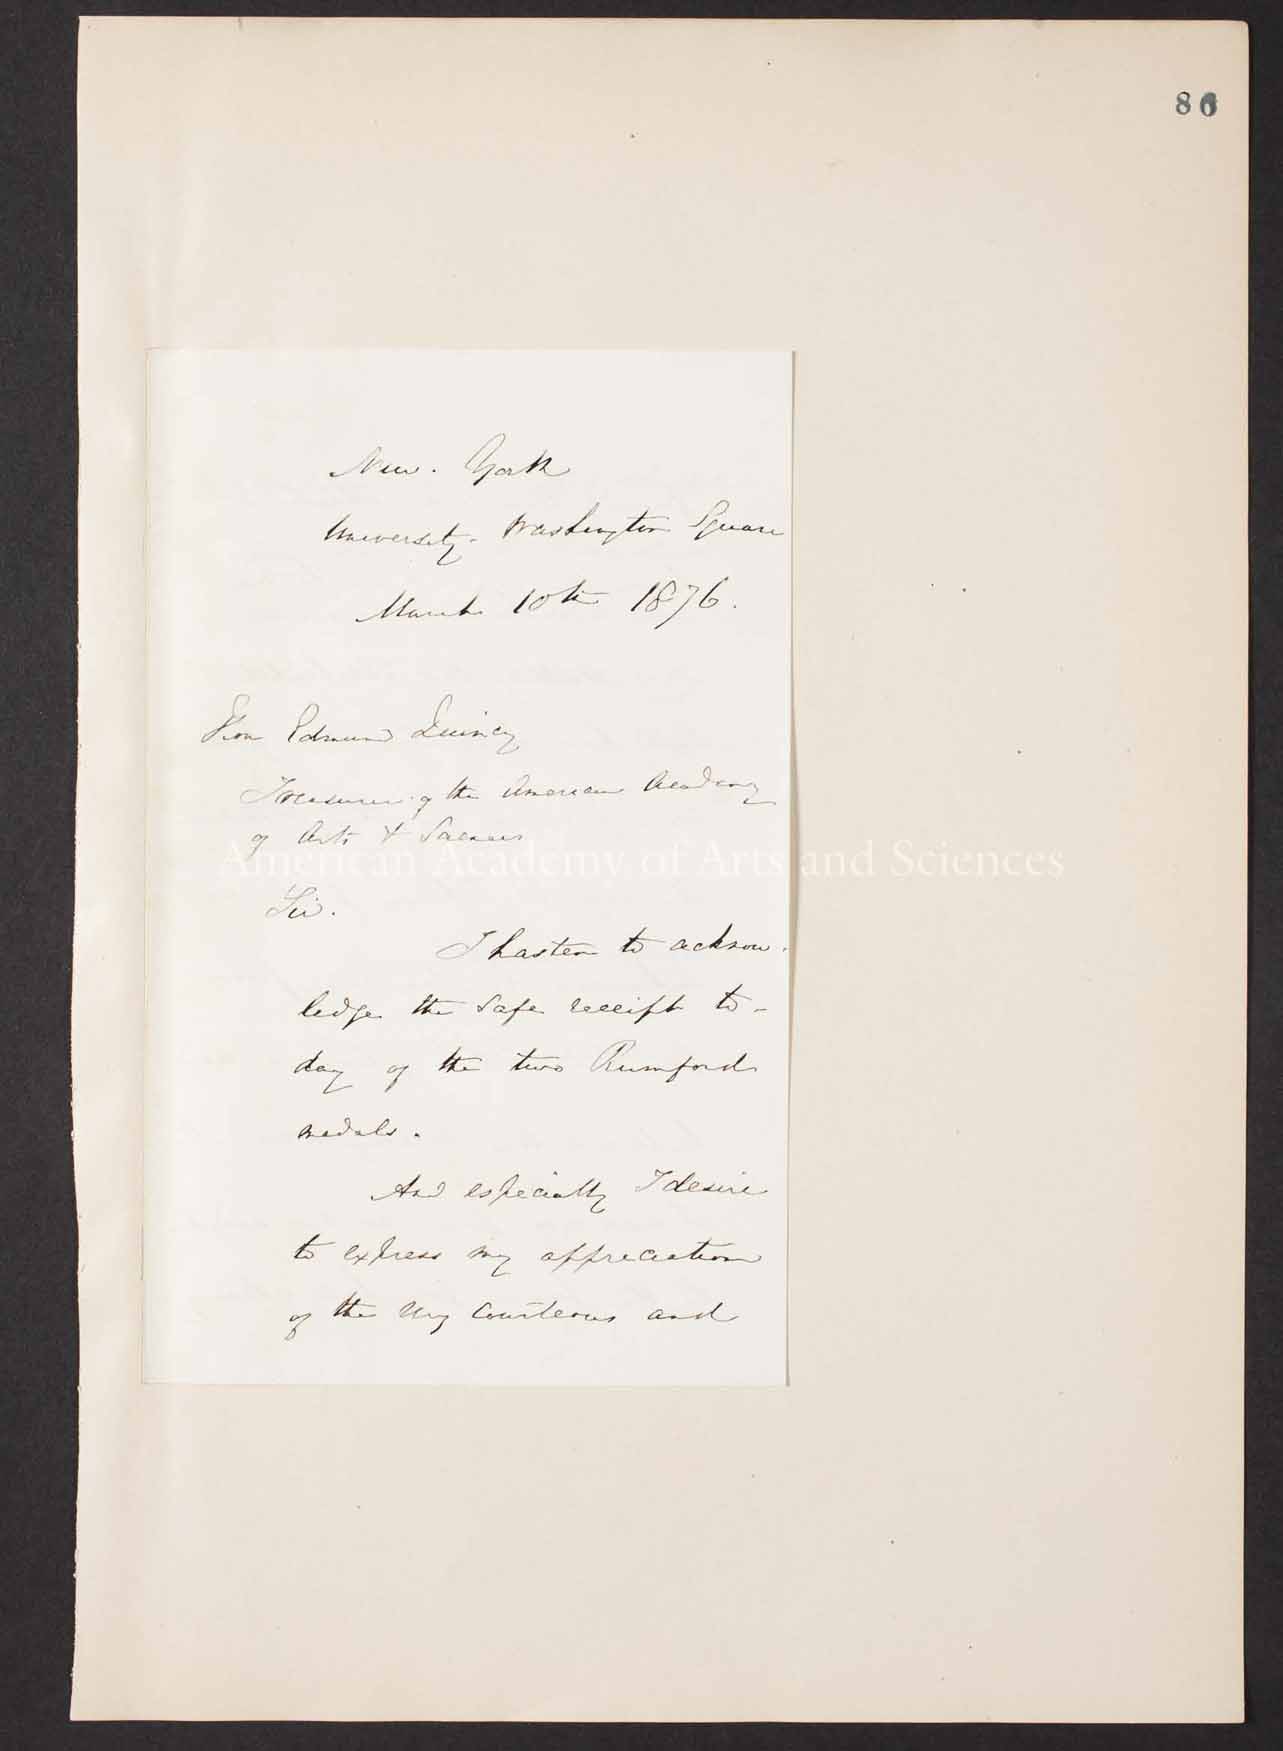 86
New. York
University. Washington Square
March 10th 1876.
Hon Edmund Quincy
Treasurer of the American Academy
of Arts & Sciences
American Academy of Arts and Sciences
Sir.
I hasten to acknow.
ledge the safe receipt to-
day of the two Rumford
medals.
And especially I desire
to express my appreciation
of the very courteous and